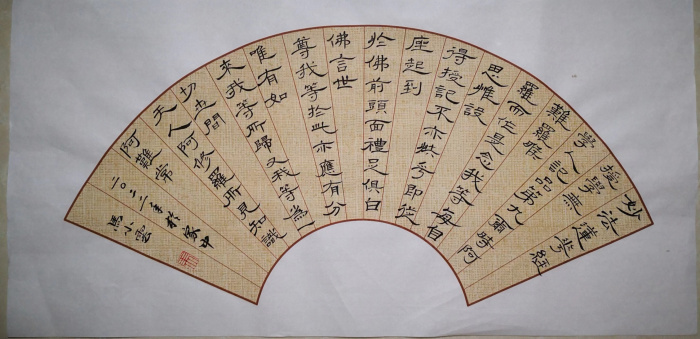 妙法蓮華經
授學無
學人記品第九爾時阿
難羅睺
羅而作是念我等每自
思惟設
得授記不亦快乎即從
座起到
於佛前頭面禮足俱白
佛言世
尊我等於此亦應有分
唯有如
來我等所歸又我等為一
切世間
天人阿修羅所見知識
阿難常
二〇二二年於家中
小雲